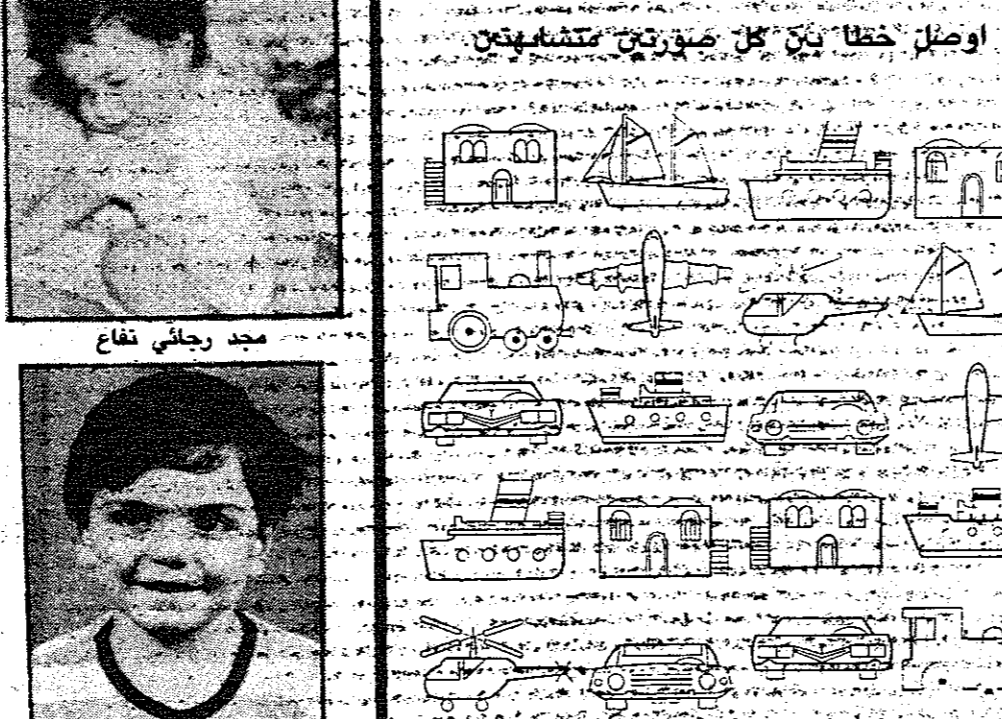 اوصل خطا بين كل صورتين متشابهتين
مجد رجائي تفاع